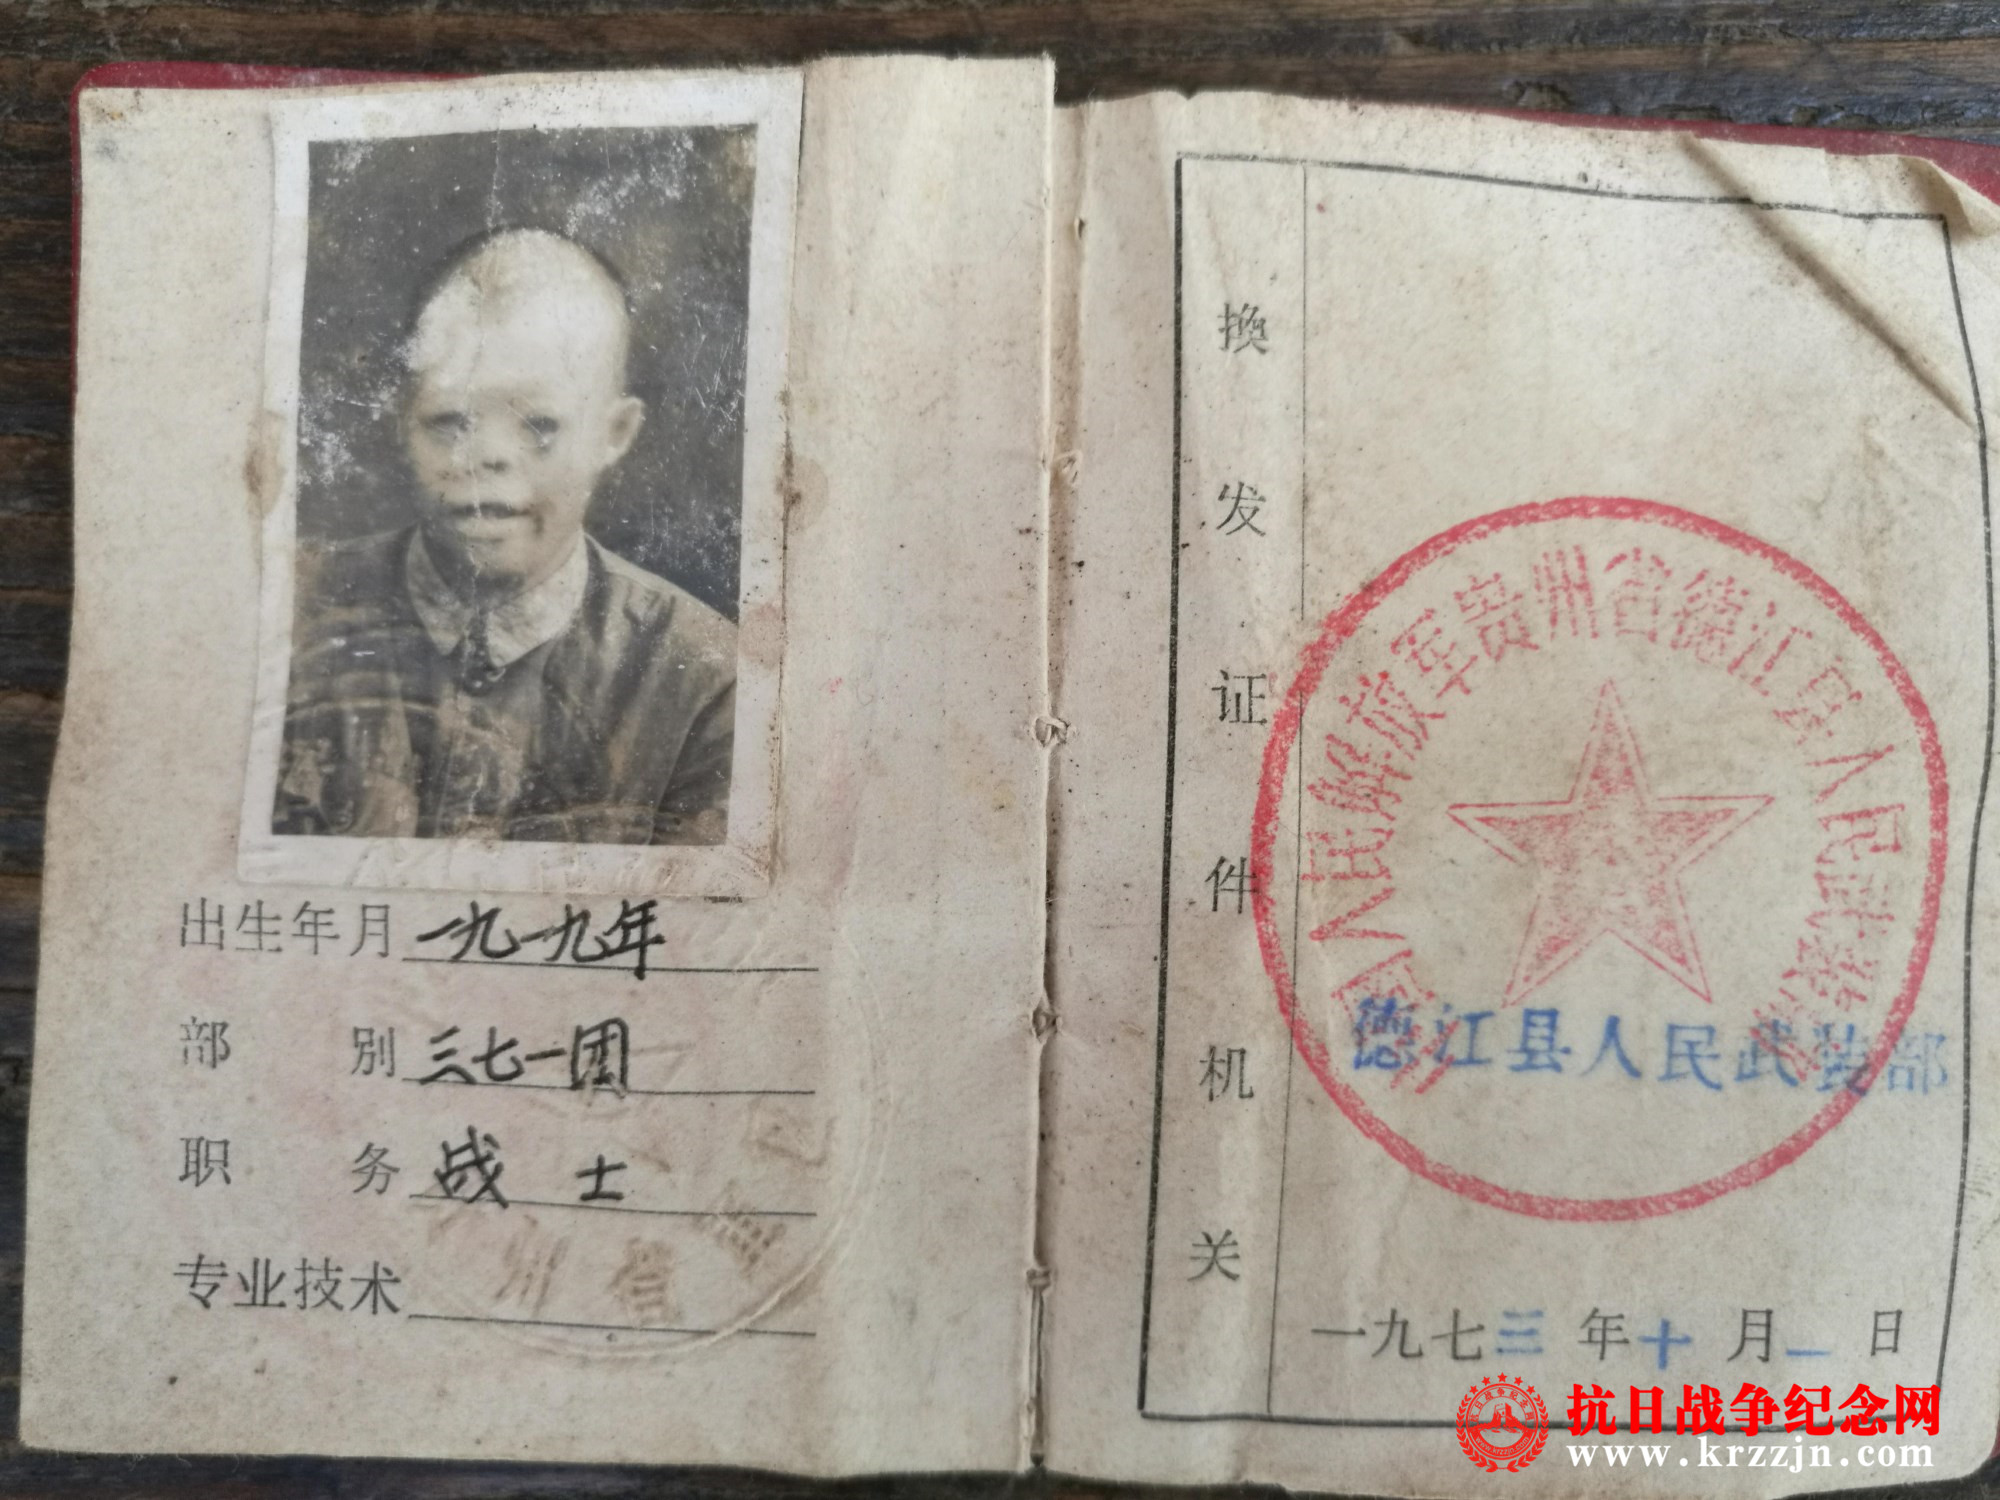 出生年月 一九一九年
部别 三七一团
职务 战士
专业技术
州省
换发证件机关
国人民解放军贵州省德江县人民武装
德江县人民武装部
一九七三年十月一日
抗日战争纪念网
www.krzzjn.com